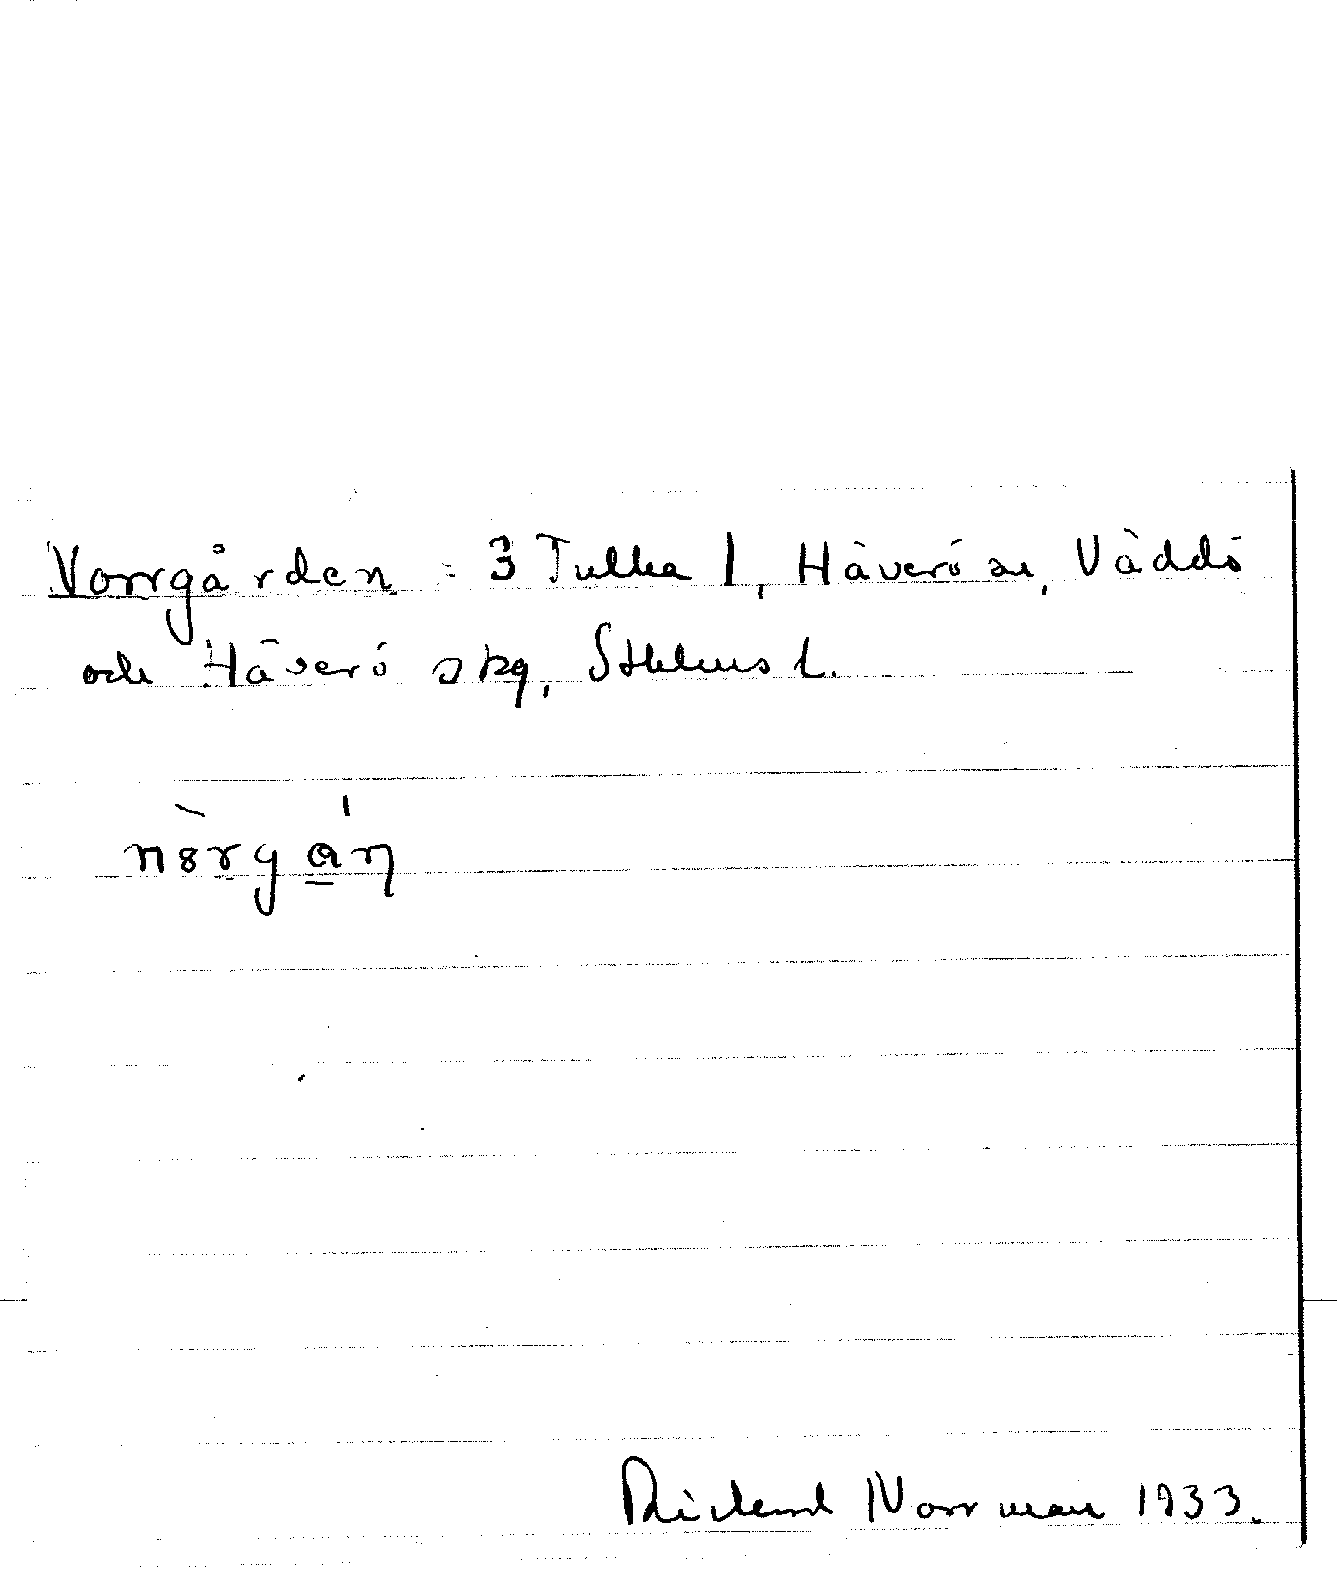 Norrgården = 3 Tulka 1, Häverö sn, Väddö
och Häverö skg, Sthlms l.
nòrgɑ̠́ŋ
Rickard Norrman 1933.